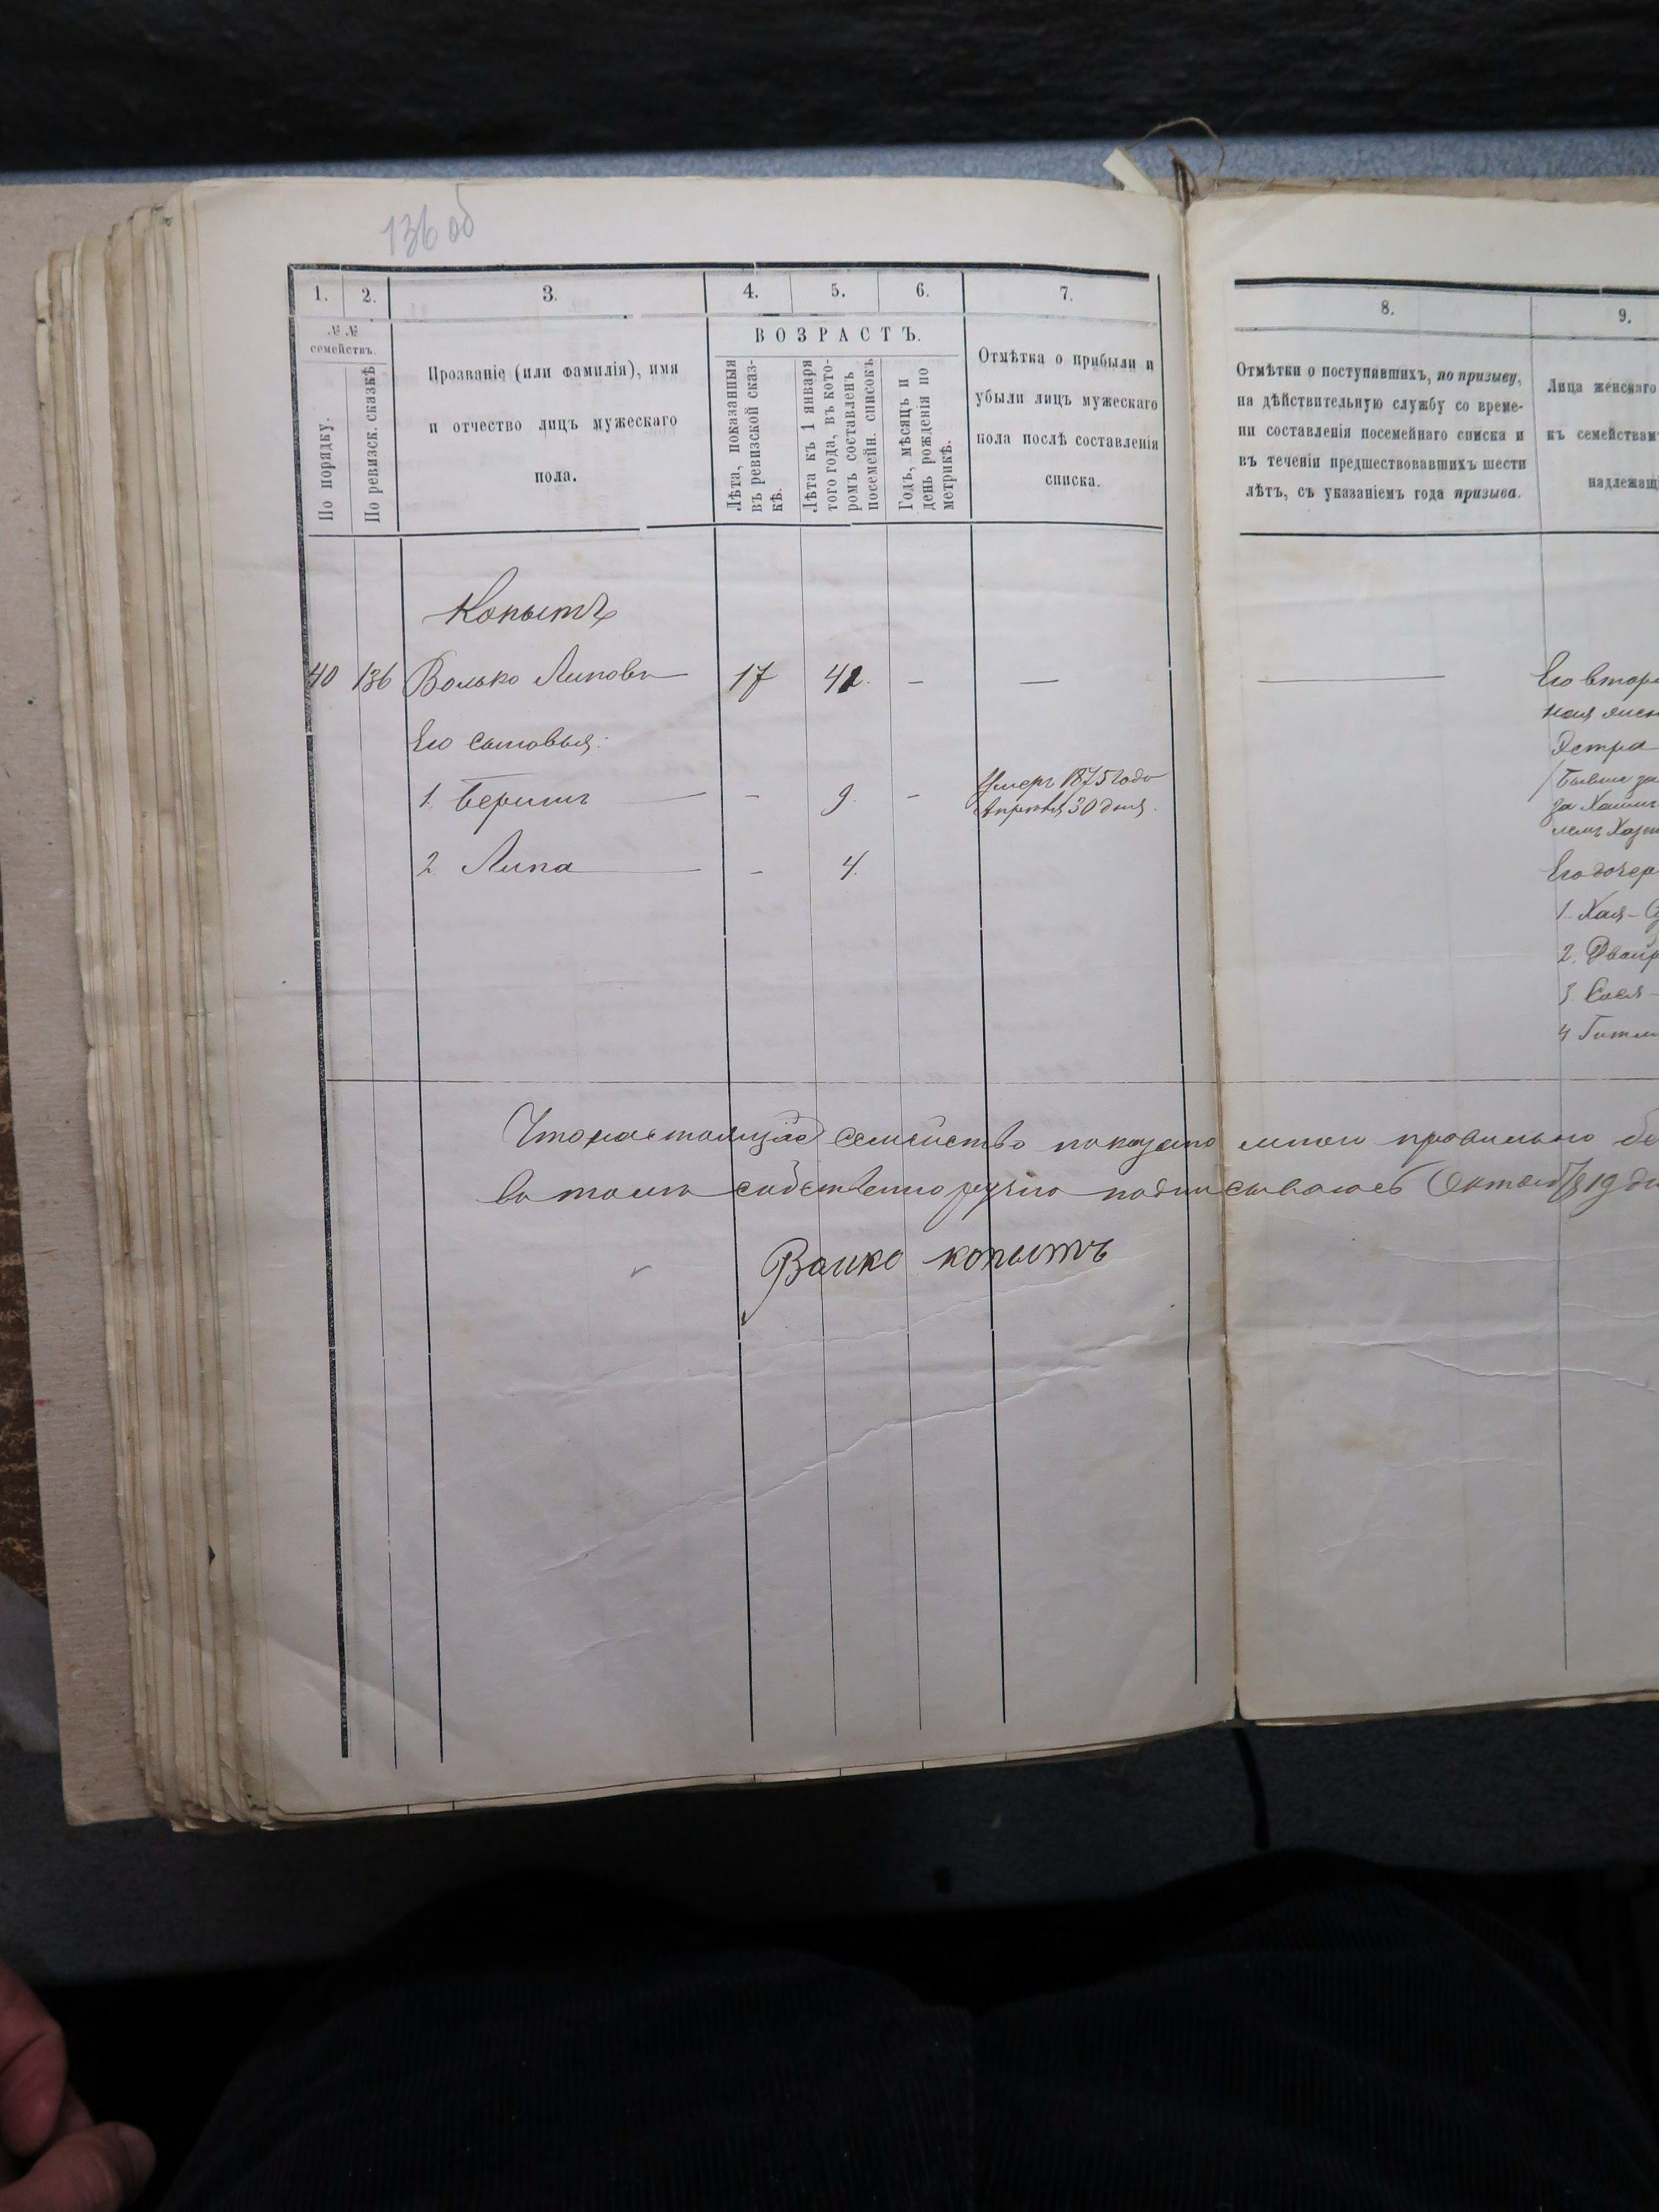 136 об
1. 2. 3. 4. 5. 6. 7.
№ №
семействъ.
По порядку.
По ревизск. сказкѣ
Прозваніе (или фамилія), имя
и отчество лицъ мужескаго
пола.
ВОЗРАСТЪ.
Лѣта, показанныя
въ ревизской сказ-
кѣ.
Лѣта къ 1 января
того года, въ кото-
ромъ составленъ
посемейн. списокъ
Годъ, мѣсяцъ и
день рожденія по
метрикѣ.
Отмѣтка о прибыли и
убыли лицъ мужескаго
пола послѣ составленія
списка.
Копытъ
40 136 Волько Липовъ 17 42. - —
Его сыновья:
1. Беришъ — - 9. - Умеръ 1875 года
Апрѣля 30 дня.
2 Липа — - 4.
8. 9.
Отмѣтки о поступившихъ, по призыву,
на дѣйствительную службу со време-
ни составленія посемейнаго списка и
въ теченіи предшествовавшихъ шести
лѣтъ, съ указаніемъ года призыва.
Лица женскаго
къ семействам
надлежащ
Его втор
Эстра
за
Его дочер
1. Хая-
2. Двейр
3.
4 Гитл
Что настоящее семейство показано мною правильно
въ томъ собственноручно подписываюсь Октября 19 дн
Валко копытъ